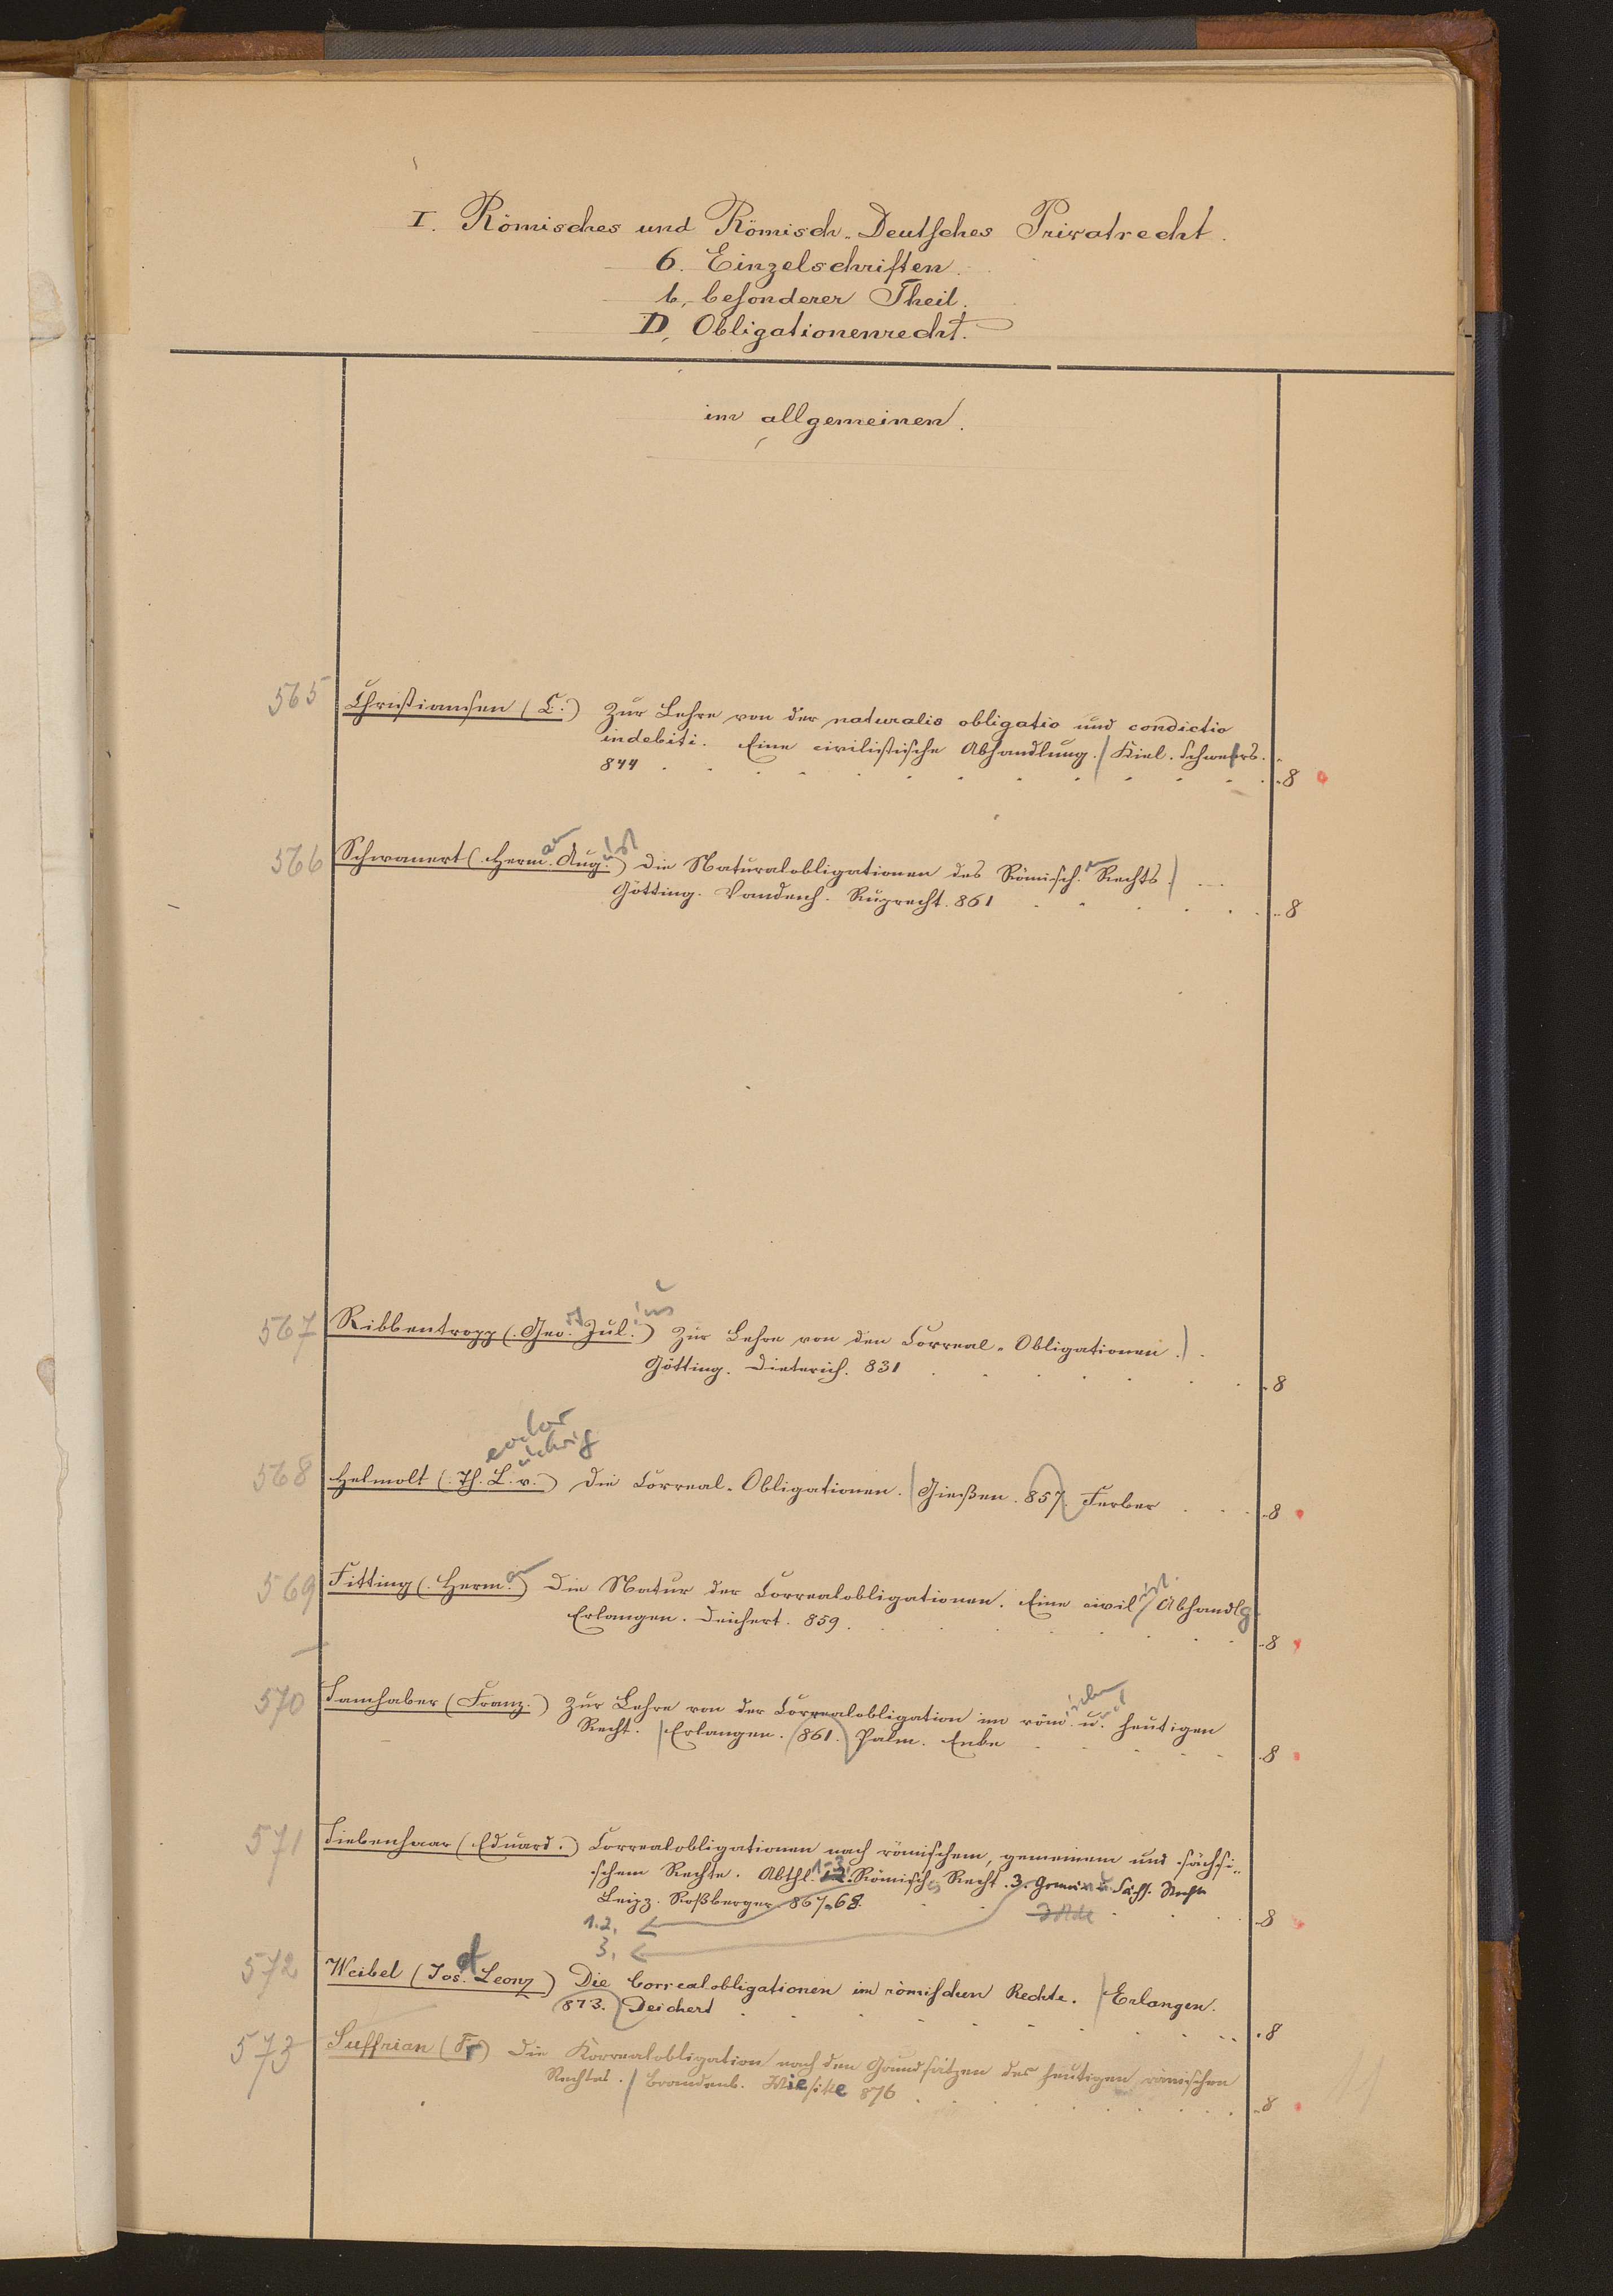 I. Römisches und Römisch-Deutsches Privatrecht.
6. Einzelschriften.
b, besonderer Theil.
D, Obligationenrecht.
im allgemeinen.
565 Christiansen (C.) Zur Lehre von der naturalis obligatio und condictio
indebiti. Eine civilistische Abhandlung. Kiel. Schwers.
844 8
566 Schwanert (Hermann August) Die Naturalobligationen des Römisch. Rechts.
Götting. Vandenh. Ruprecht. 861 8
567 Ribbentropp (Geo. Julius) Zur Lehre von den Correal-Obligationen.
Götting. Dieterich. 831 8
eodor
udwig
568 Helmolt (Th. L. v.) Die Correal-Obligationen. Gießen. 857. Ferber 8
569 Fitting (Hermann) Die Natur der Correalobligationen. Eine civilist. Abhandlg
Erlangen. Deichert. 859. 8
570 Samhaber (Franz.) Zur Lehre von der Correalobligation im römischen und heutigen
Recht. Erlangen. 861. Palm. Enke 8
571 Siebenhaar (Eduard.) Correalobligationen nach römischem, gemeinem und sächsi-
schem Rechte. Abthl. 1-3. Römisches Recht. 3. Gemein u. Sächs. Recht
Leipz. Roßberger 867-68. 8
1.2.
3.
572 Weibel (Jos. Leonz) Die Correalobligationen im römischen Rechte. Erlangen.
873. Deichert 8
573 Suffrian (Fr) Die Korrealobligation nach den Grundsätzen des heutigen römischen
Rechtes. Brandenb. Wiesike 876 8